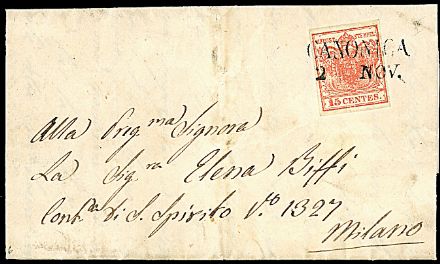 CANONICA
2 NOV.
15 CENTES.
Alla Preg.ma Signora
La Sig.ra Elena Biffi
Cont.a di S. Spirito N.o 1327
Milano